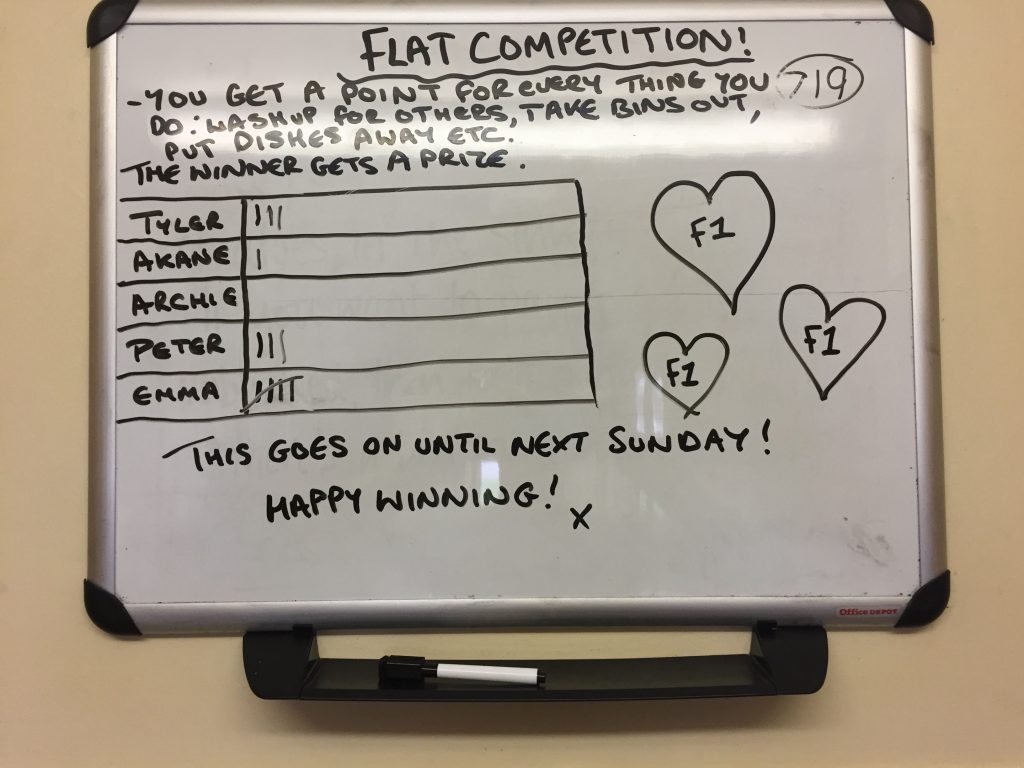 FLAT COMPETITION!
- YOU GET A POINT FOR EVERY THING YOU
DO: WASHUP FOR OTHERS, TAKE BINS OUT,
PUT DISHES AWAY ETC.
THE WINNER GETS A PRIZE.
719
TYLER
AKANE
ARCHIE
PETER
EMMA
F1
F1
F1
THIS GOES ON UNTIL NEXT SUNDAY!
HAPPY WINNING! X
Office DEPOT